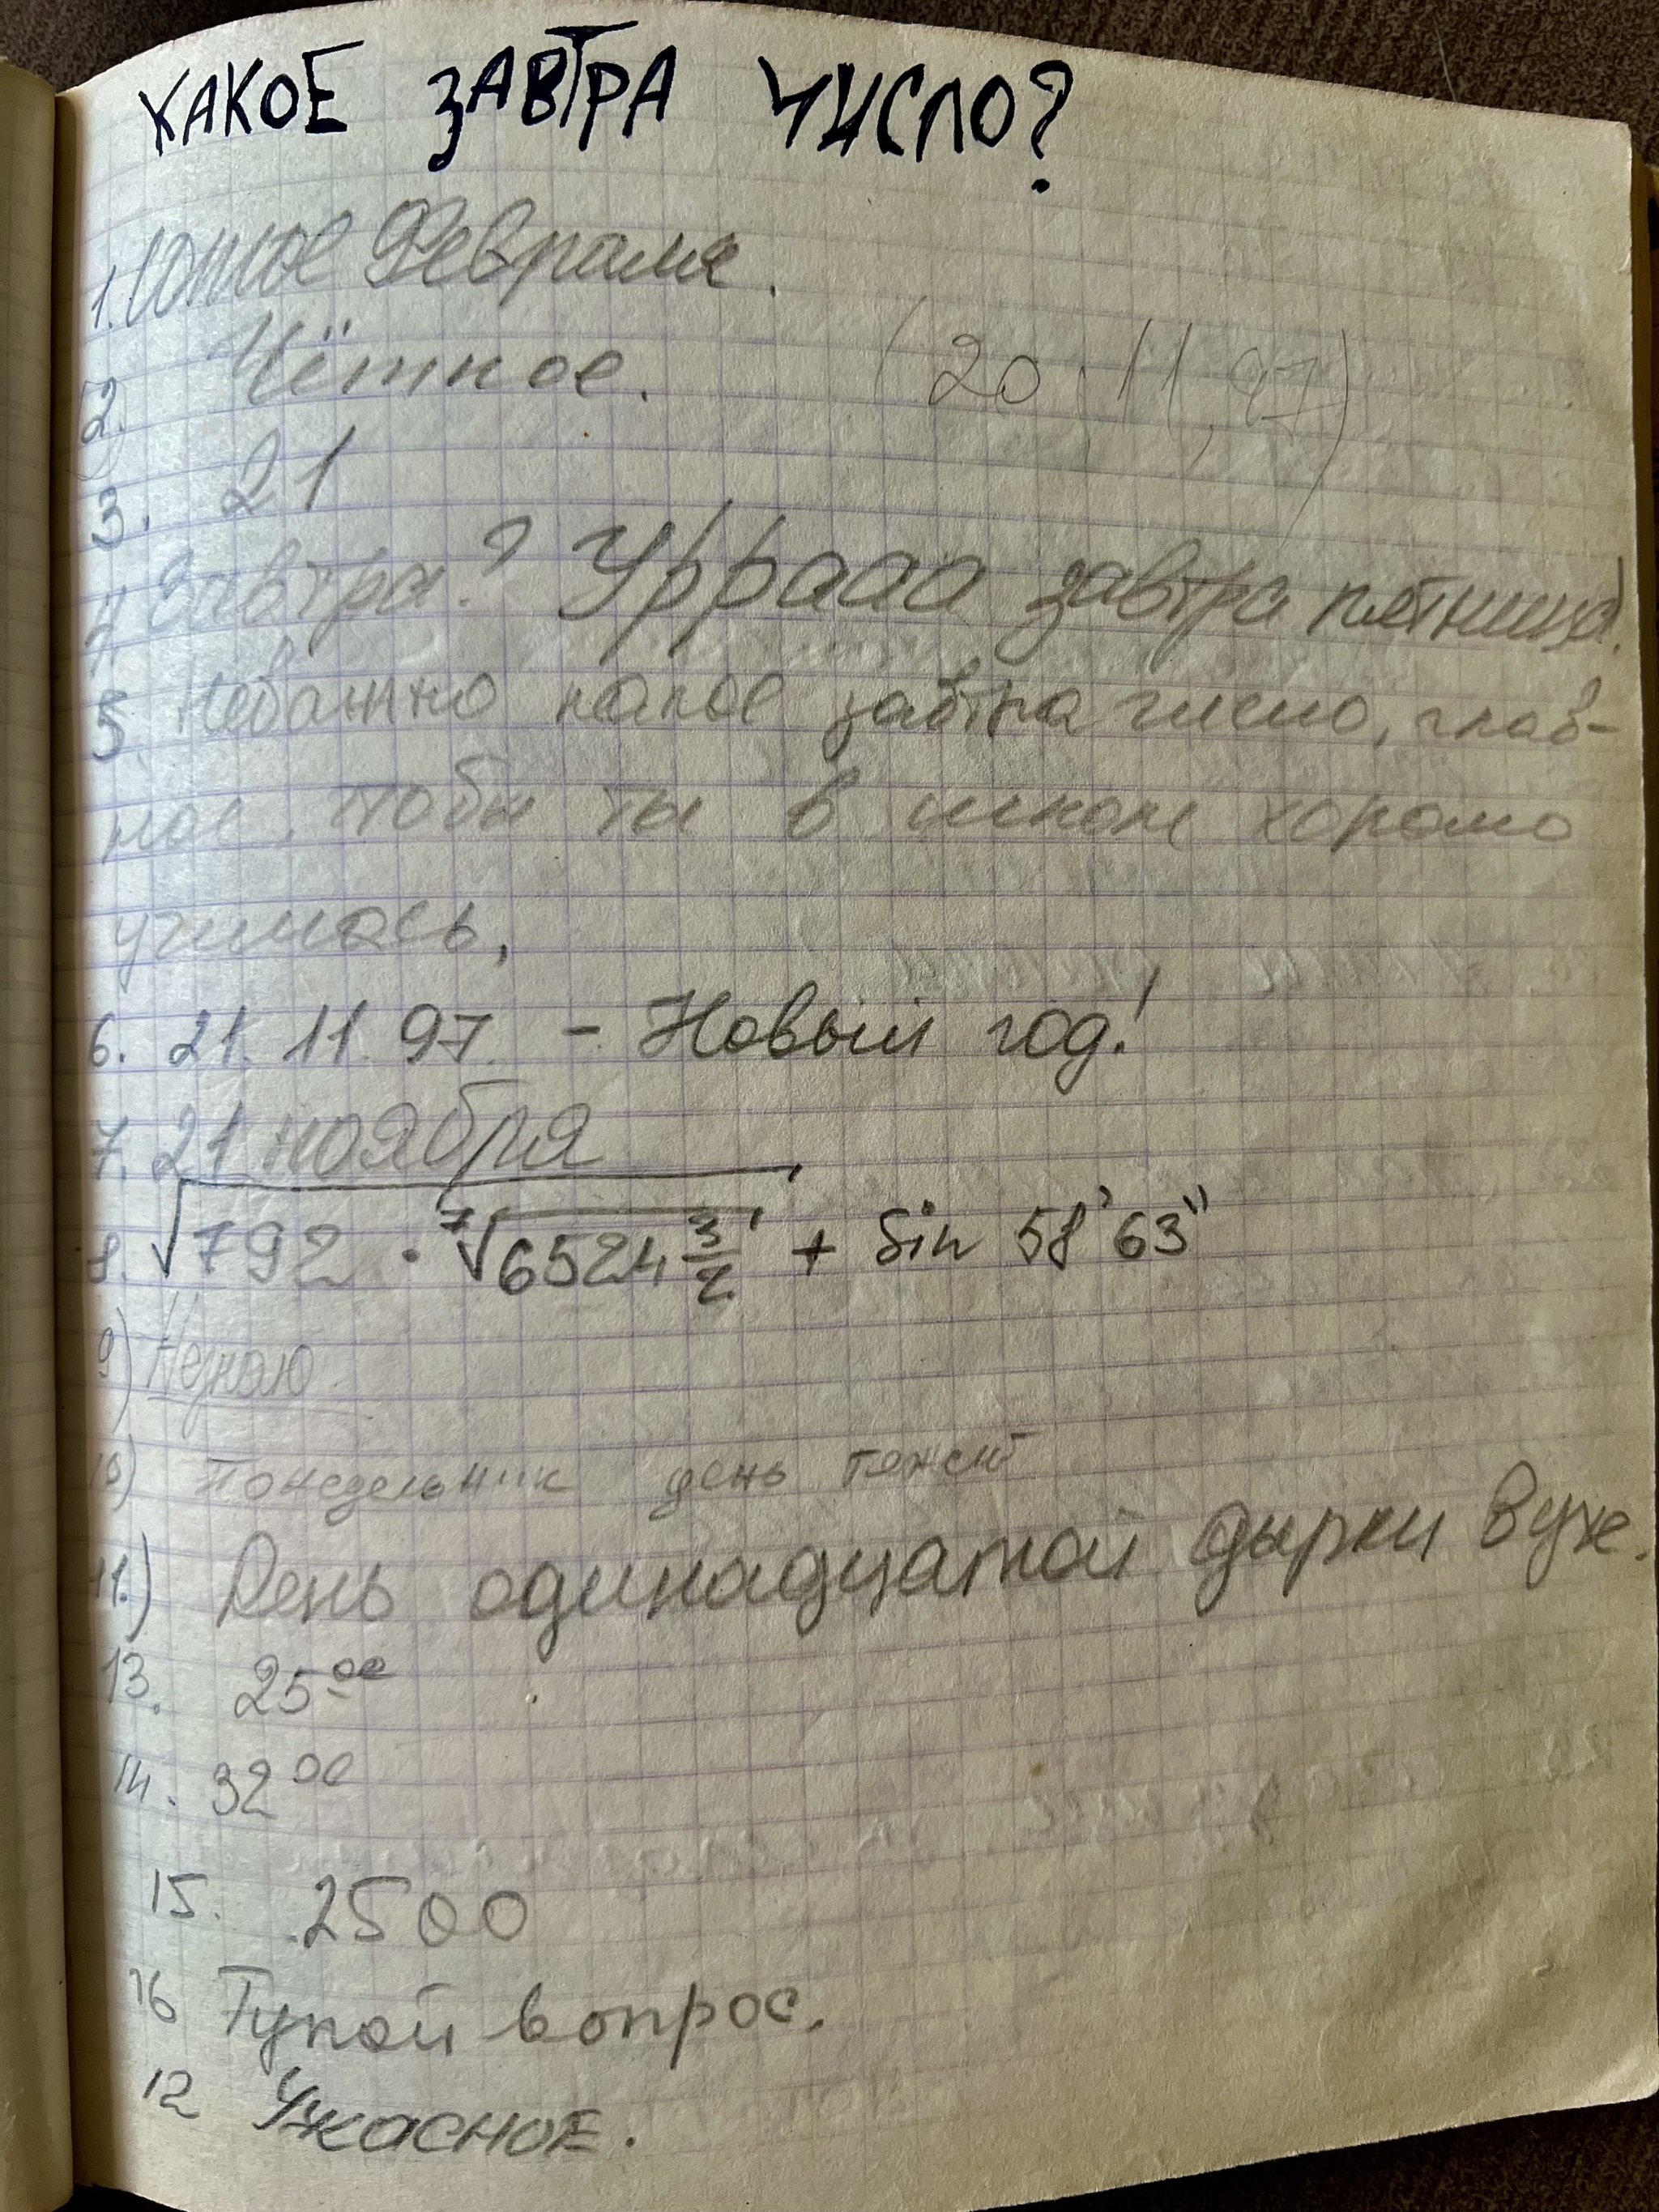 КАКОЕ ЗАВТРА ЧИСЛО?
1. Февраля.
2. Чётное. (20, 11, 97)
3. 21
4 Завтра? Урраaа завтра пятница!
5 Неважно какое завтра число, глав-
ное, чтобы ты в школе хорошо
училась,
6. 21. 11. 97. - Новый год!
7. 21 ноября
8. √792 · ⁷√6524 3/2 + Sin 58' 63"
9) Не знаю.
10) Понедельник день тяжёл
11.) День одинадцатой дырки в ухе.
13. 25⁰⁰
14. 32⁰⁰
15. 2500
16 Тупой вопрос.
12 УЖАСНОЕ.